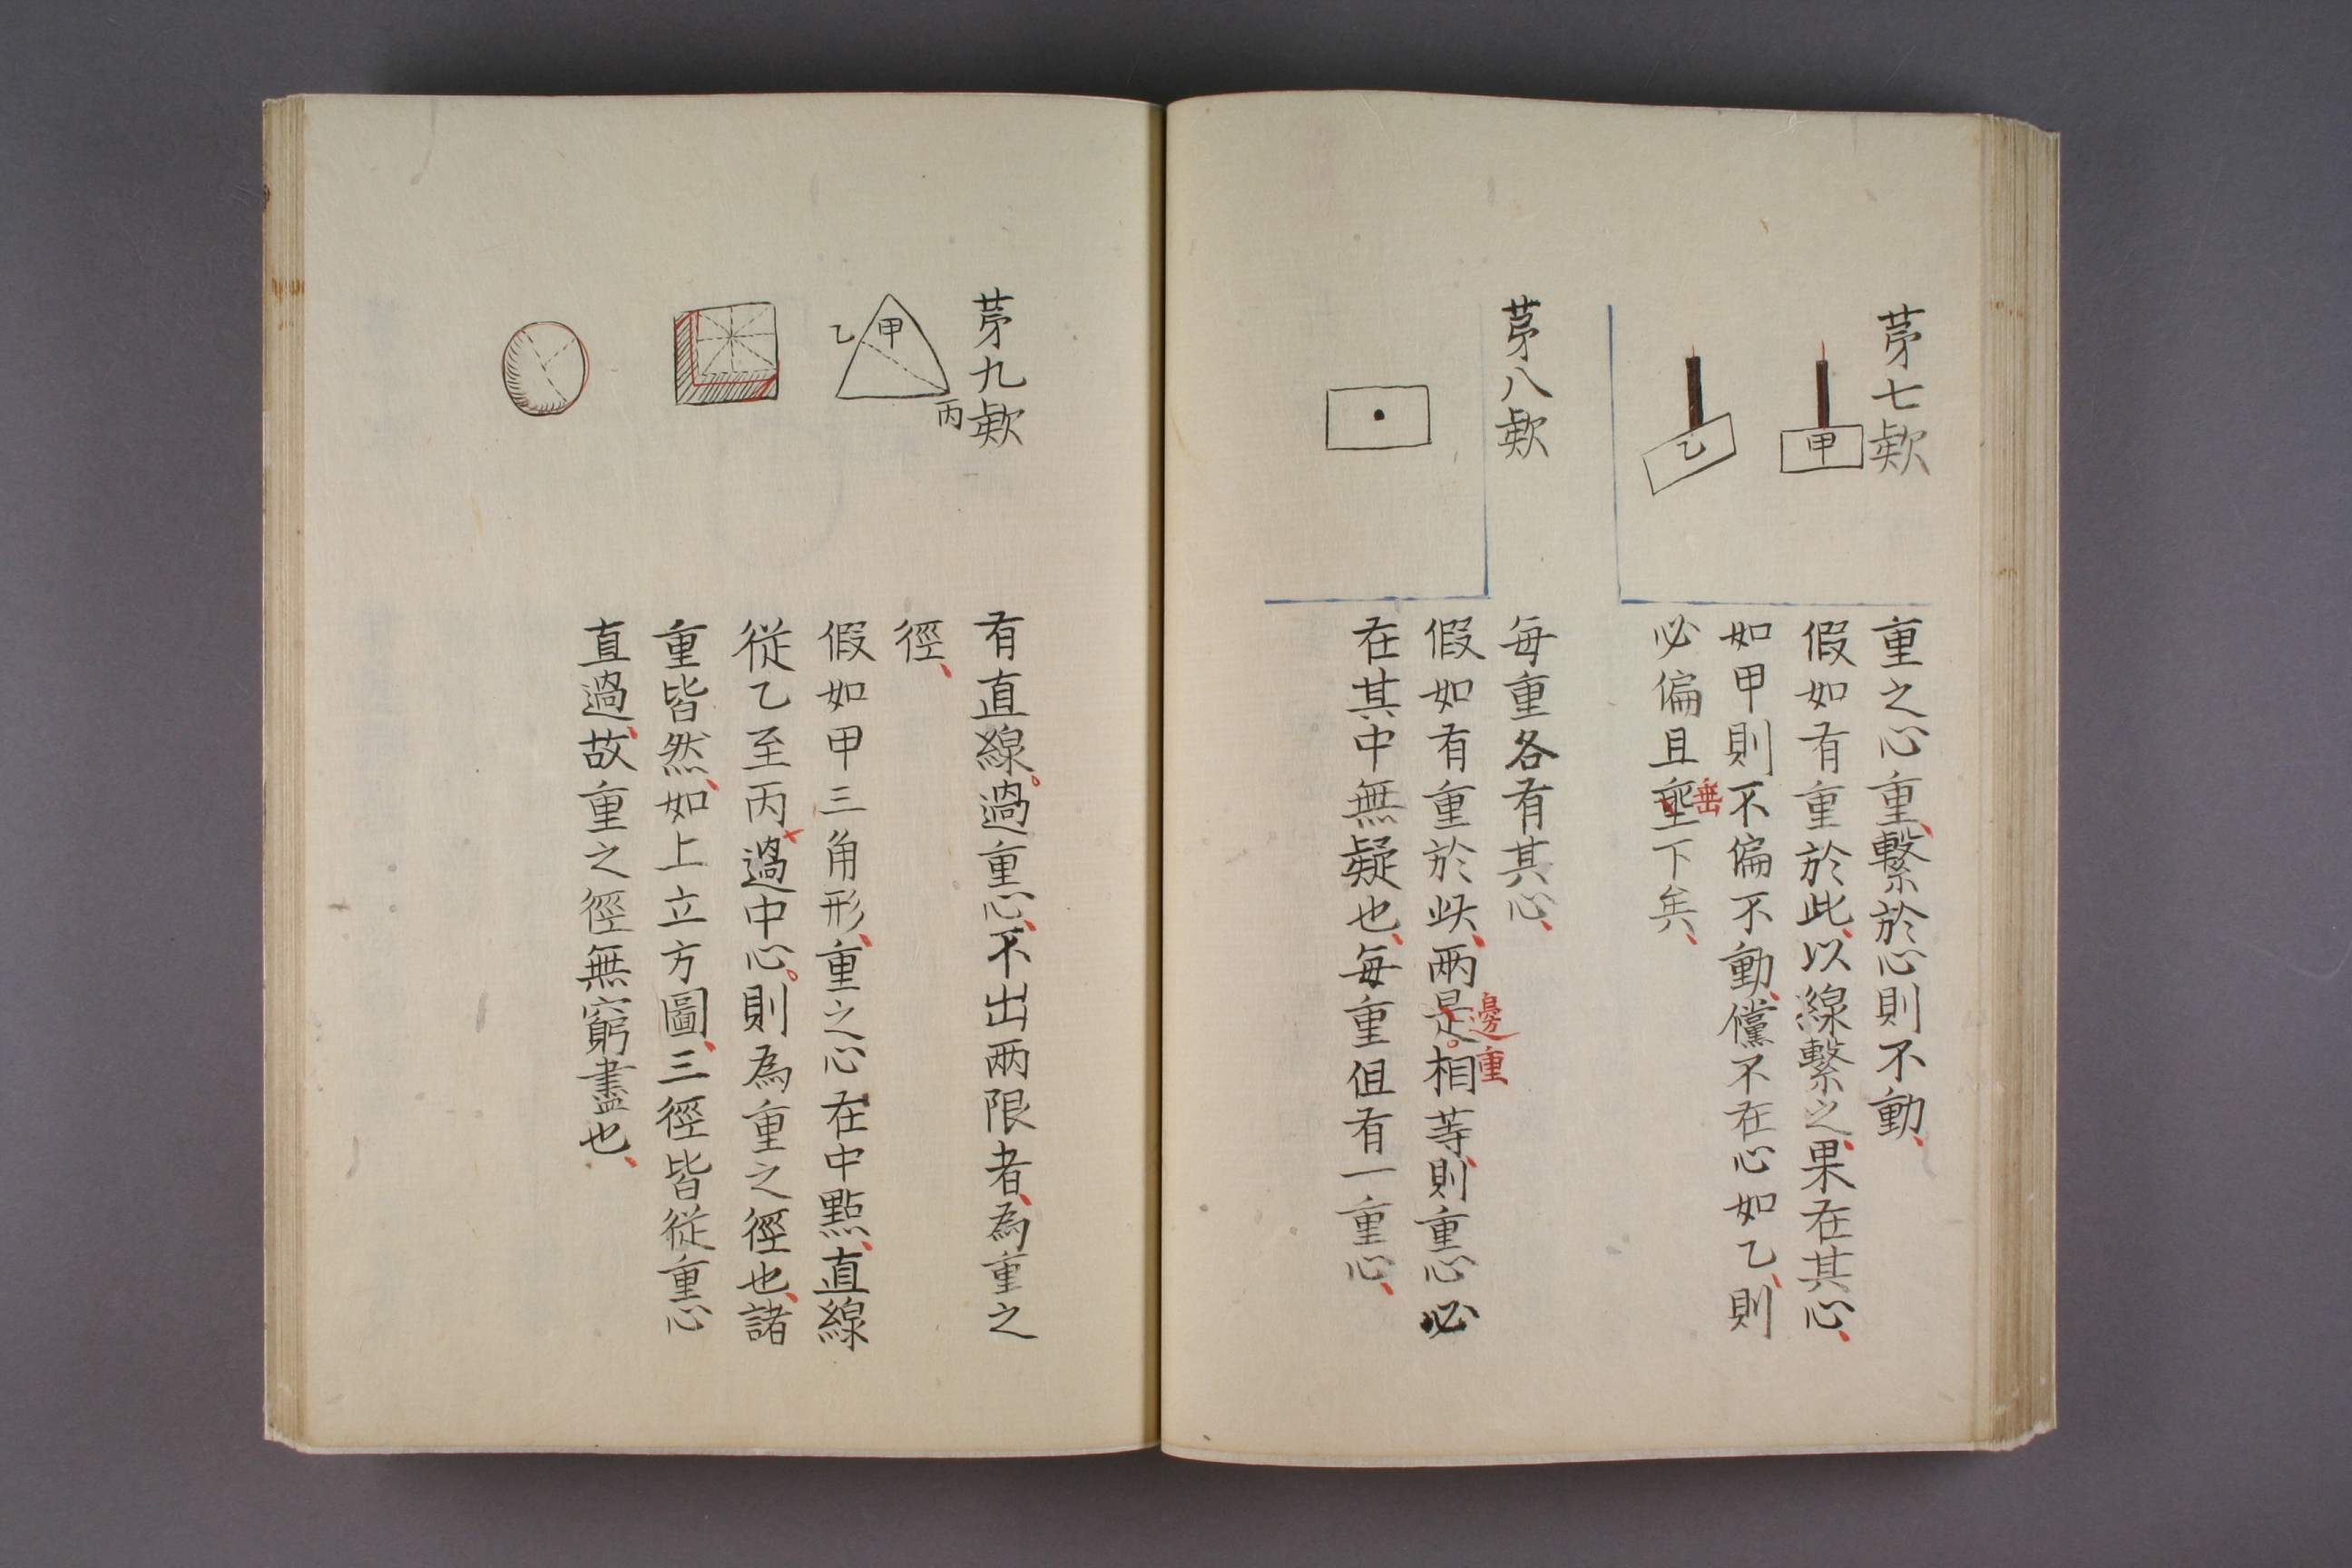 第七款
甲
乙
重之心重、繫於心則不動、
假如有重於此、以線繫之、果在其心、
如甲則不偏不動、儻不在心如乙、則
必偏且埀下矣、
垂
第八款
每重各有其心、
假如有重於此、兩是。相等、則重心必
邊重
在其中無疑也、每重但有一重心、
第九款
甲
乙
丙
有直線。過重心、不出兩限者、為重之
徑、
假如甲三角形、重之心在中點、直線
從乙至丙過中心。則為重之徑也、諸
重皆然、如上立方圖、三徑皆從重心
直過、故重之徑無窮盡也、